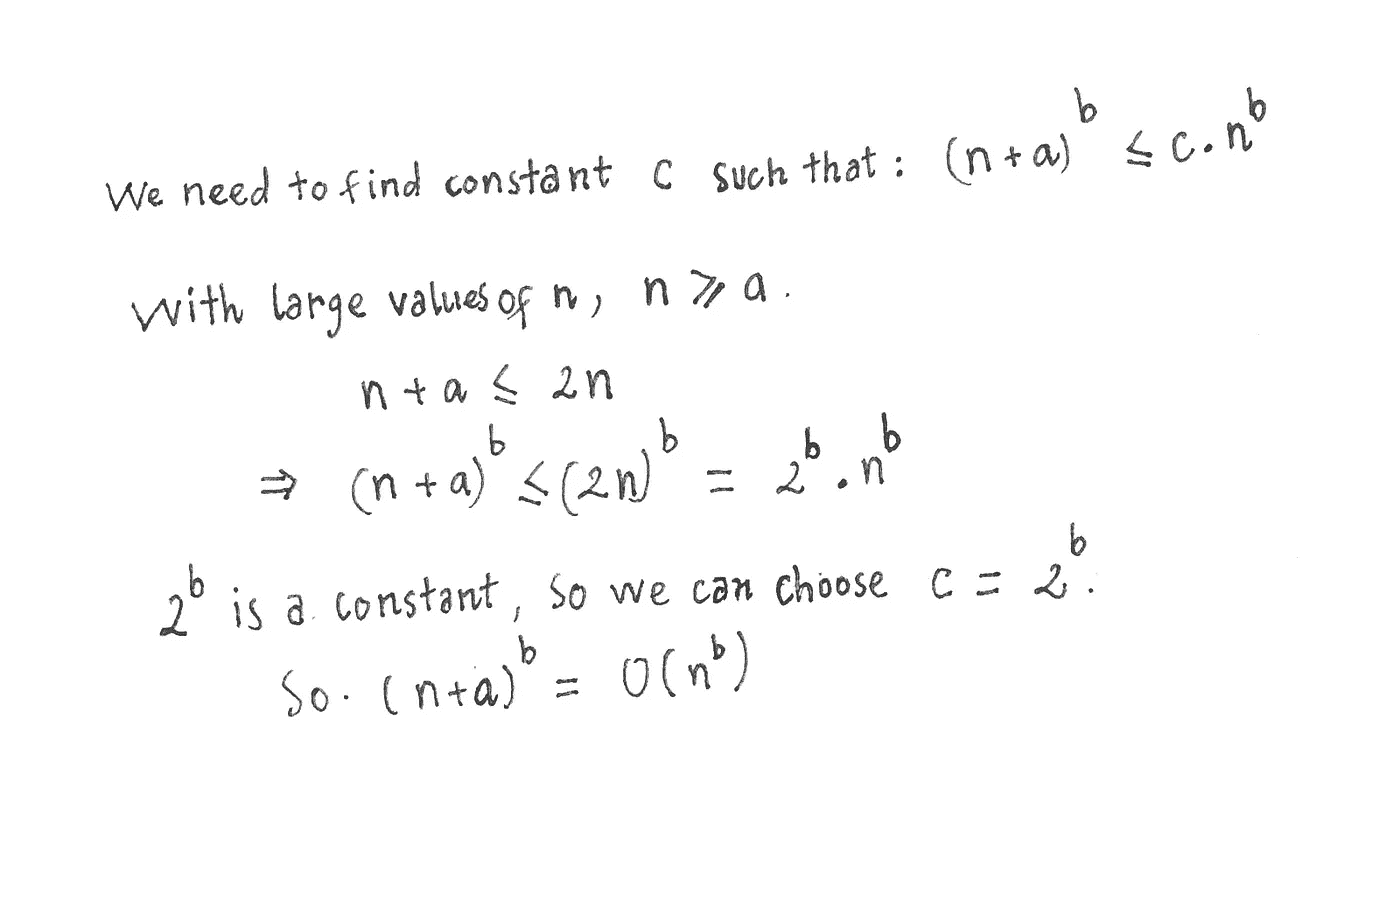 We need to find constant c such that : (n + a)^b ≤ c . n^b
with large values of n, n ⩾ a .
n + a ≤ 2n
⇒ (n + a)^b ≤ (2n)^b = 2^b . n^b
2^b is a constant, so we can choose c = 2^b.
So. (n+a)^b = O(n^b)